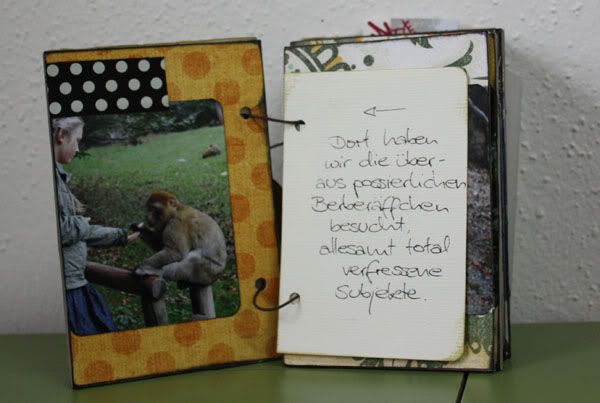 ←
Dort haben
wir die über-
aus possierlichen
Berberäffchen
besucht,
allesamt total
verfressene
Subjekte.